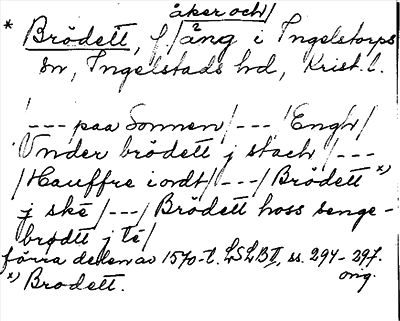 åker och/
* Brödett, f/ äng i Ingelstorps
sn, Ingelstads hd, Krist. l.
/--- paa Sonnen/---/Engh/
Vnder brödett j stach/---
/Hauffre iordt/---/Brödett *)
j ské /---/Brödett hoss senge-
brødtt j té/
förra delen av 1570-t. LSLB II, ss. 294-297.
orig.
*) Brodett.